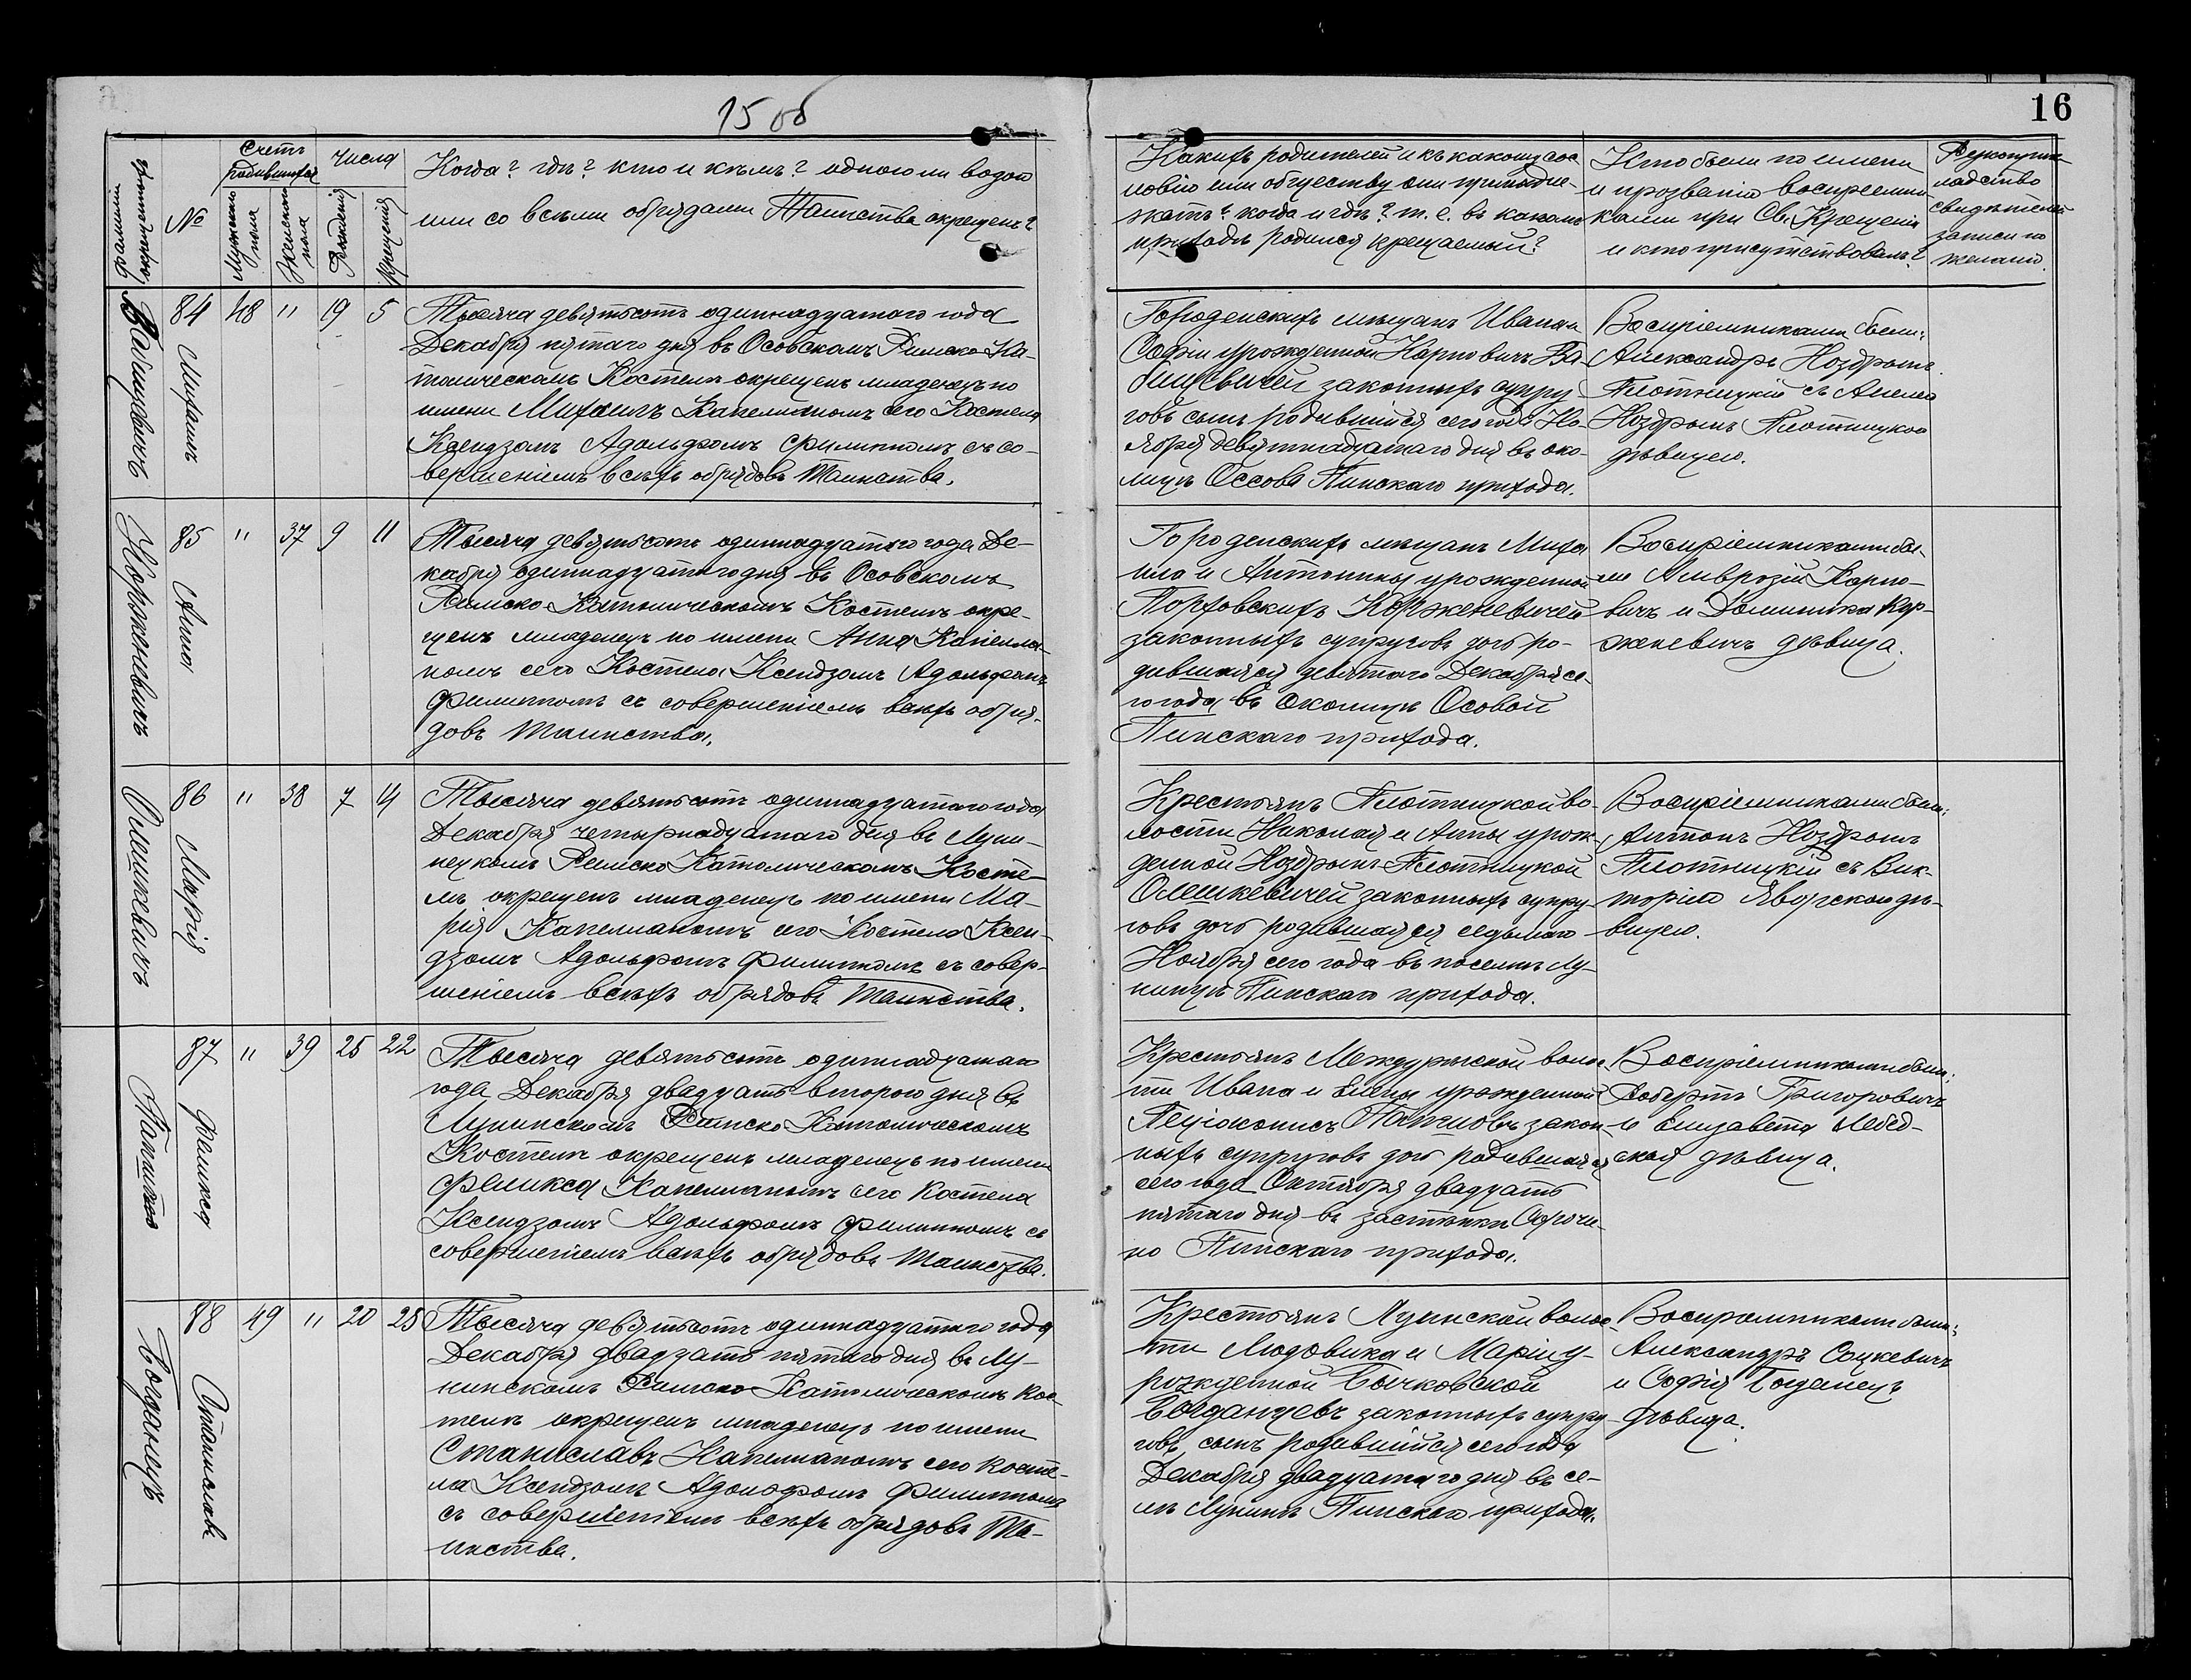 15 об
16
Счетъ
родившихся
Числа
№
Мужского
пола
Женскаго
пола
Рожденія
Крещенія
Когда? гдѣ? кто и кѣмъ? одною ли водою
или со всѣми обрядами Таинства окрещенъ?
Какихъ родителей и къ какому сос
ловію или обществу они принадле-
жатъ? когда и гдѣ? т. е. въ какомъ
приходѣ родился крещаемый?
Кто были по имени
и прозванію воспреемни-
ками при Св. Крещеніи
и кто присутствовалъ?
свидѣтелей
записи по
желанію.
84
48
"
19
5
Михаилъ
Тысяча девятьсотъ одиннадцатого года
Декабря пятаго дня въ Осовскомъ Римско-Ка-
толическомъ Костелѣ окрещенъ младенецъ по
имени Михаилъ Капелланомъ сего Костела
Ксендзомъ Адольфомъ Филиппомъ съ со-
вершеніемъ всѣхъ обрядовъ Таинства.
Городенскихъ мѣщанъ Ивана и
Софіи урожденной Карпович Ва-
говъ сынъ родившійся сего года Но-
ября девятнадцатаго дня въ око-
лицѣ Оссова Пинскаго прихода.
Воспріемниками были:
Александръ Ноздринъ
Плотницкій съ
Ноздринъ Плотницкою
дѣвицею.
Корженевичъ
85
"
37
9
11
Анна
Тысяча девятьсотъ одиннадцатого года Де-
кабря одиннадцатого дня въ Осовскомъ
Римско-Католическомъ Костелѣ окре-
щенъ младенецъ по имени Анна Капелла-
номъ сего Костела Ксендзомъ Адольфомъ
Филиппомъ съ совершеніемъ всѣхъ обря-
довъ Таинства.
Городенскихъ мѣщанъ Миха
ила и Антонины урожденной
Корженевичей
законныхъ супруговъ дочь ро-
дившаяся девятаго Декабря се-
го года въ околицѣ Осовой
Пинскаго прихода.
Воспріемниками бы-
ли Амврозій Карпо-
вичъ и Доминика Кор-
женевичъ дѣвица.
Олешкевичъ
86
"
38
7
14
Марія
Тысяча девятьсотъ одиннадцатаго года
Декабря четырнадцатаго дня въ Луни-
нецкомъ Римско Католическомъ Косте-
лѣ окрещенъ младенецъ по имени Ма-
рія Капелланомъ сего Костела Ксен-
дзомъ Адольфомъ Филиппомъ съ совер-
шеніемъ всѣхъ обрядовъ Таинства.
Крестьянъ Плотницкой во-
лости Николая и Анны урож-
денной Ноздринъ-Плотницкой
Олешкевичей законныхъ супру-
говъ дочь родившаяся седьмаго
Ноября сего года въ поселкѣ Лу-
нинцѣ Пинскаго прихода.
Воспріемниками были:
Антонъ Ноздринъ
Плотницкій съ Вик-
торіею Яворскою дѣ-
вицею.
87
"
39
25
22
Феликса
Тысяча девятьсотъ одиннадцатаго
года Декабря двадцать второго дня въ
Лунинскомъ Римско Католическомъ
Костелѣ окрещенъ младенецъ по имени
Феликса Капелланомъ сего Костела
Ксендзомъ Адольфомъ Филиппомъ съ
совершеніемъ всѣхъ обрядовъ Таинства.
Крестьянъ волос
ти Ивана и Елены урожденной
закон-
ныхъ супруговъ дочь родившаяся
сего года Октября двадцать
пятаго дня въ застѣнкѣ Сорочи-
но Пинскаго прихода.
Воспріемниками были:
Робертъ Григоровичъ
и Елизавета Лебед-
ская дѣвица.
Богданецъ
88
49
"
20
25
Станиславъ
Тысяча девятьсотъ одиннадцатого года
Декабря двадцать пятаго дня въ Лу-
нинскомъ Римско Католическомъ Кос-
телѣ окрещенъ младенецъ по имени
Станиславъ Капелланомъ сего Косте-
ла Ксендзомъ Адольфомъ Филиппомъ
съ совершеніемъ всѣхъ обрядовъ Та-
инства.
Крестьянъ Лунинской волос
ти Людовика и Маріи у-
рожденной Бычковской
Богданцевъ законныхъ супру-
говъ, сынъ родившійся сего года
Декабря двадцатаго дня въ се-
лѣ Лунинѣ Пинскаго прихода.
Воспріемниками были:
Александръ Сацкевичъ
и Софія Богданецъ
дѣвица.